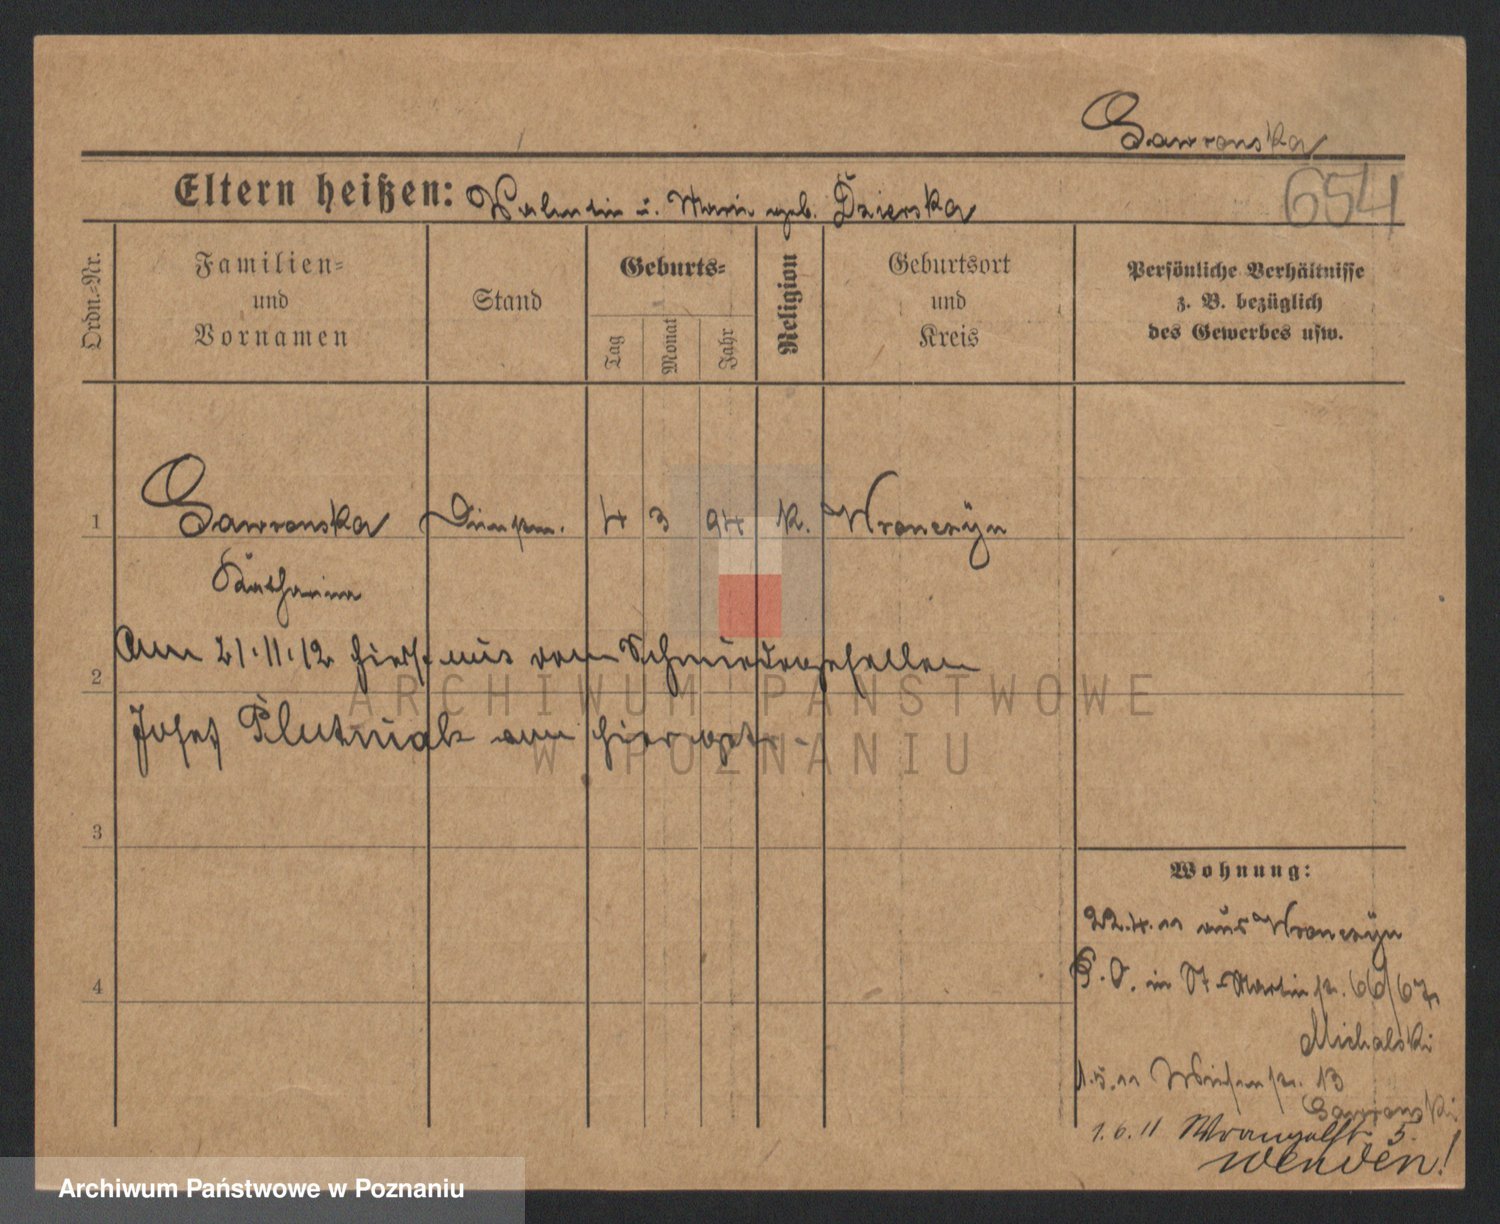 Gawronska
Eltern heißen: Valentin u. Marie geb. Dzierska
654
Ordn.-Nr.
Familien-
und
Vornamen
Stand
Geburts-
Tag
Monat
Jahr
Religion
Geburtsort
und
Kreis
Persönliche Verhältnisse
z. B. bezüglich
des Gewerbes usw.
1 Gawronska Dienstm. 4 3 94 k. Wronczyn
Katharina
Am 21.11.12 hierst. mit vom Schmiedegesellen
2
Josef Plutniak
ARCHIWUM PAŃSTWOWE
W POZNANIU
3
4
Wohnung:
22.4.11 aus Wronczyn
in St. Martinstr. 66/67
Michalski
1.5.11 Wiesenstr. 13
Gawronski
1.6.11 Wrangelstr. 5.
wenden!
Archiwum Państwowe w Poznaniu